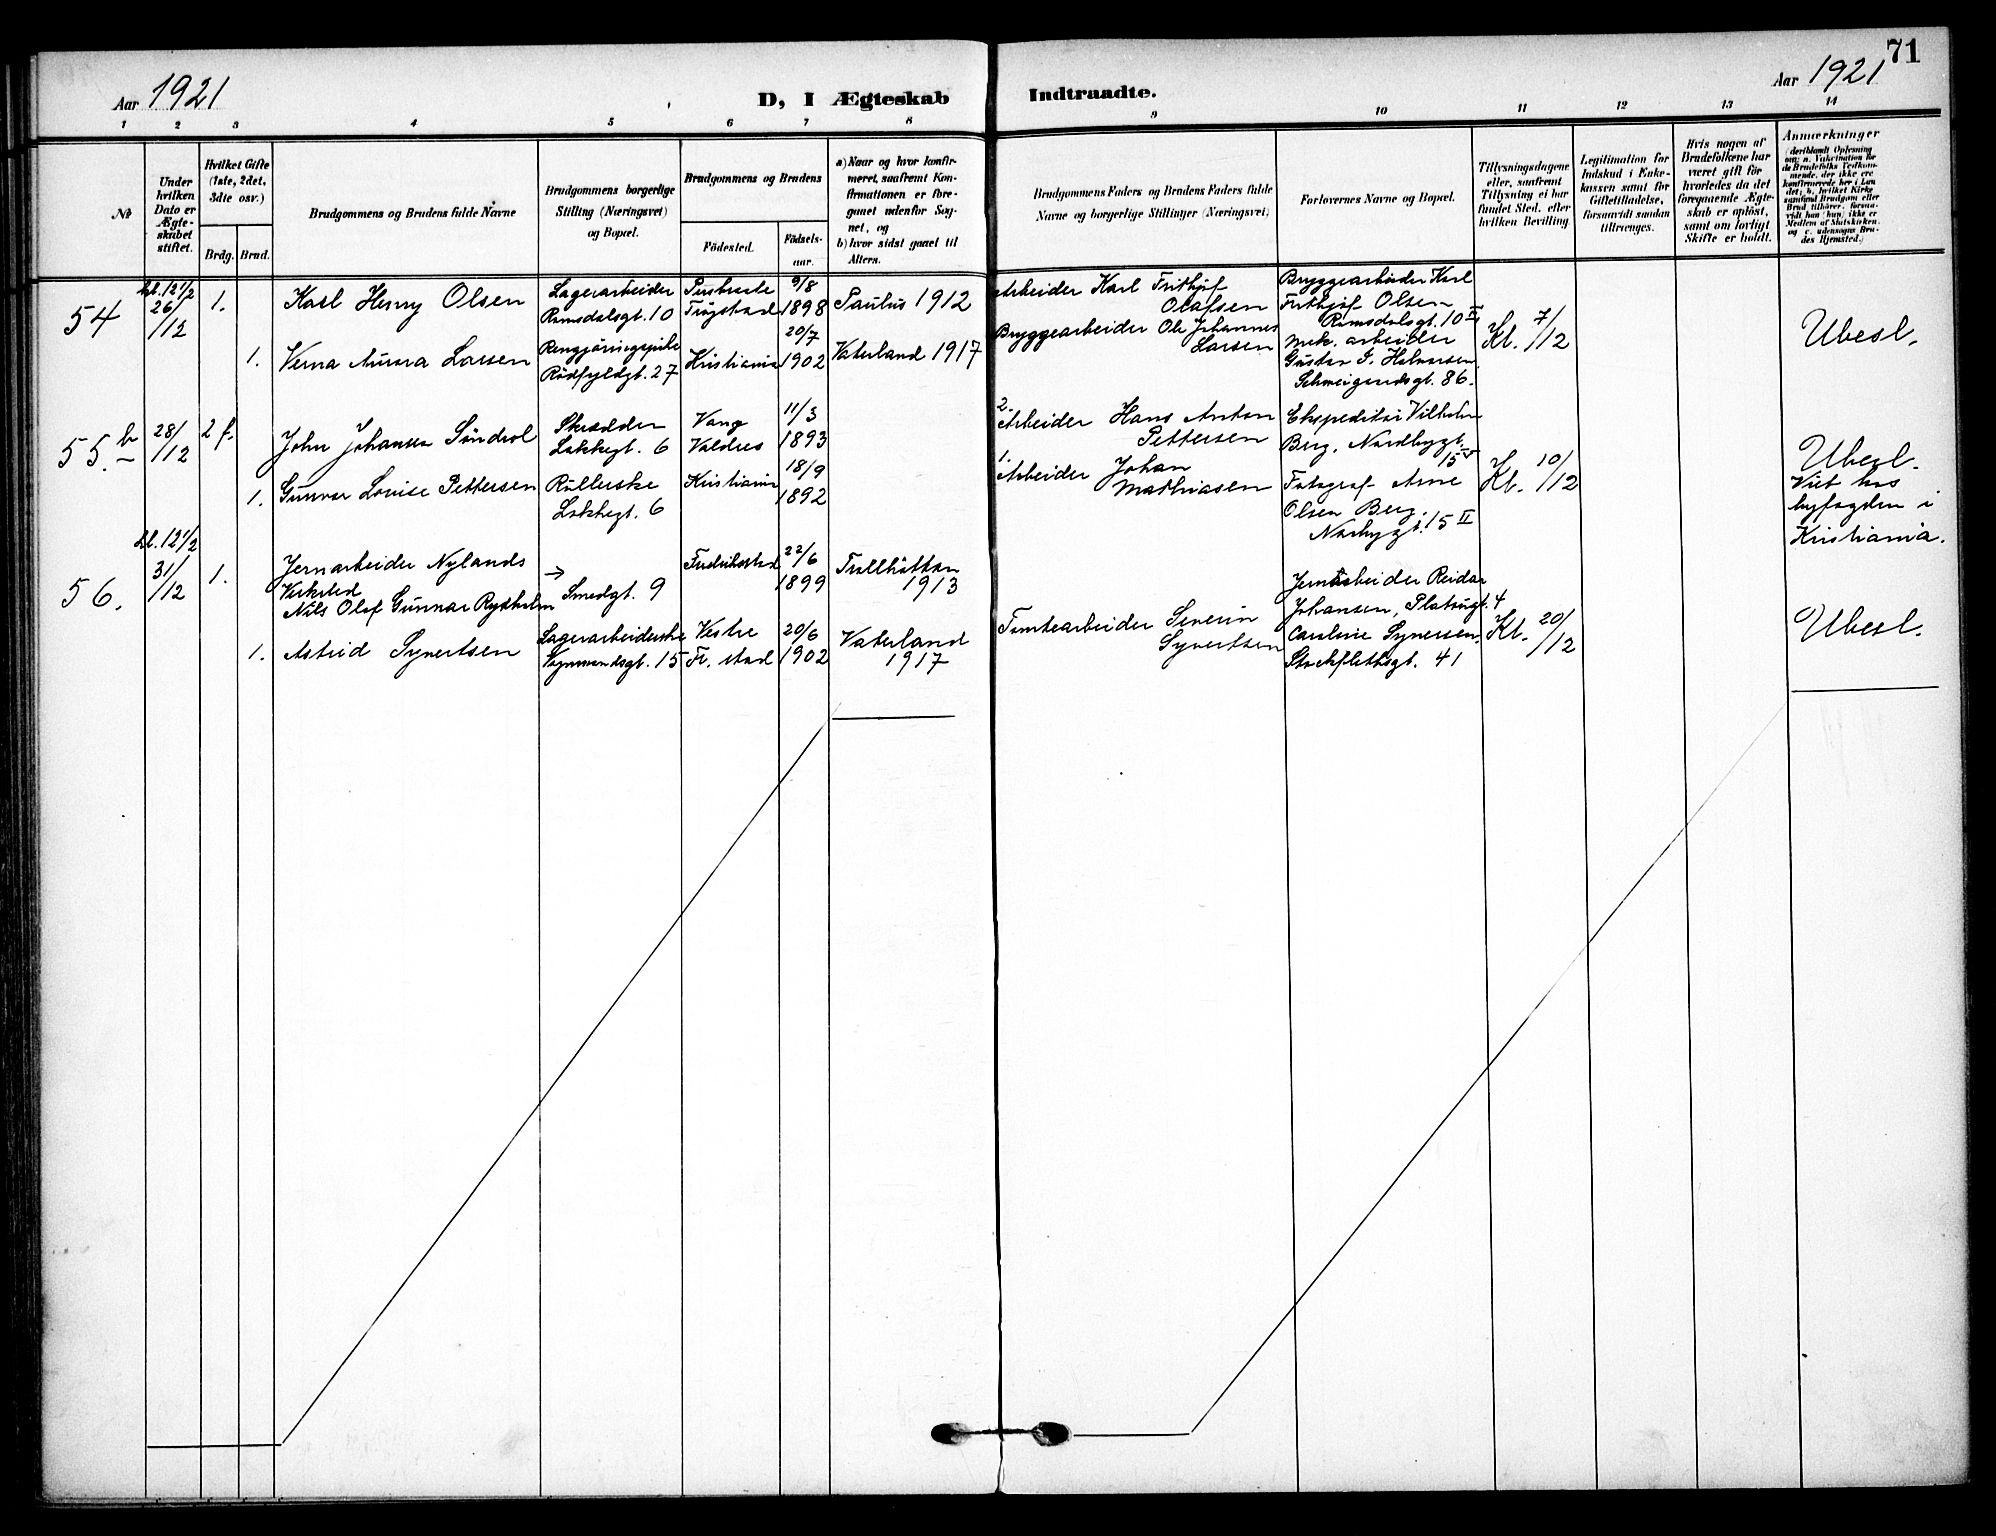 71
Aar 1921
D, I Ægteskab
Indtraadte.
Aar 1921
1 2 3 4 5 6 7 8 9 10 11 12 13 14
No
Under
hvilken
Dato er
Ægte-
skabet
stiftet.
Hvilket Gifte
(1ste, 2det,
3die osv.)
Brdg. Brud.
Brudgommens og Brudens fulde Navne
Brudgommens borgerlige
Stilling (Næringsvei)
og Bopæl.
Brudgommens og Brudens
Födested.
Födsels-
aar.
a) Naar og hvor konfir-
meret, saafremt Kon-
firmationen er fore-
gaaet udenfor Sog-
net, og
b) hvor sidst gaaet til
Alters.
Brudgommens Faders og Brudens Faders fulde
Navne og borgerlige Stillinger (Næringsvei)
Forlovernes Navne og Bopæl.
Tillysningsdagene
eller, saafremt
Tillysning ei har
fundet Sted, efter
hvilken Bevilling
Legitimation for
Indskud i Enke-
kassen samt for
Giftetilladelse,
forsaavidt saadan
tiltrænges.
Hvis nogen af
Brudefolkene har
været gift för
hvorledes da det
foregaaende Ægte-
skab er oplöst,
samt om lovligt
Skifte er holdt.
Anmærkninger
(deriblandt Oplysning
om: a. Vakcination for
de Brudefolks Vedkom-
mende, der ikke ere
konfirmerede her i Lan-
det; b. hvilket Kirke-
samfund Brudgom eller
Brud tilhører, forsaa-
vidt han (hun) ikke er
Medlem af Statskirken.
og c. udensogns Bru-
des Hjemsted.)
54
kl. 12 1/2
26/
/12
1.
Karl Henry Olsen
Lagerarbeider
Romsdalsgt. 10
Trøgstad
9/8
1898
Paulus 1912
Arbeider Karl Frithjof
Olafsen
Bryggearbeider Karl
Frithjof Olsen
Romsdalsgt. 10 II
Kl. 7/
/12
Ubesl.
1.
Verna Aurora Larsen
Rengjøringspike
Rødfyldgt. 27
Kristiania
20/7
1902
Vaterland 1917
Bryggearbeider Ole Johannes
Larsen
mek. arbeider
Gustav I. Halvorsen
Schweigaardsgt. 86.
55. b
28/
/12
2 f.
John Johansen Søndrol
Skrædder
Lakkegt. 6
Vang
Valdres
11/3
1893
2.
Arbeider Hans Anton
Pettersen
Ekspeditør Vilhelm
Berg, Nordbygt.
15
Kl. 10/
/12
Ubesl.
Viet hos
byfogden i
Kristiania.
1.
Gunvor Louise Pettersen
Rullerske
Lakkegt. 6
Kristiania
18/9
1892
1.
Arbeider Johan
Mathiasen
Fotograf Arne
Olsen Berg.
Norbygt. 15 II
56.
kl. 12 1/2
31/
/12
1.
Jernarbeider Nylands
Verksted
Nils Olof Gunnar Rydholm
→
Smedgt. 9
Fredrikstad
22/6
1899
Trollhättan
1913
Jernarbeider Reidar
Johansen, Platougt. 4
Kl. 20/
/12
Ubesl.
1.
Astrid Syvertsen
Lagerarbeiderske
15
Vestre
Fr. stad
20/6
1902
Vaterland
1917
Tomtearbeider Severin
Syvertsen
Caroline Syversen.
Stockflethsgt. 41